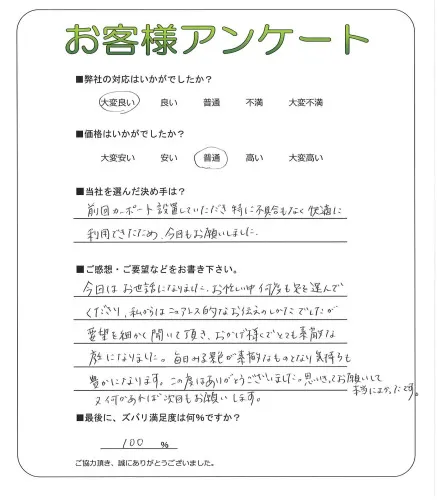 お客様アンケート
■弊社の対応はいかがでしたか？
大変良い 良い 普通 不満 大変不満
■価格はいかがでしたか？
大変安い 安い 普通 高い 大変高い
■当社を選んだ決め手は？
前回カーポート設置していただき特に不具合もなく快適に
利用できたため、今回もお願いしました.
■ご感想・ご要望などをお書き下さい。
今回はお世話になりました.お忙しい中何度も足を運んで
くださり、私からは
的なお伝えのしかたでしたが
要望を細かく聞いて頂き、おかげ様でとても素敵な
庭になりました。毎日みる景色が素敵なものとなり気持ちも
豊かになります。この度はありがとうございました。思いきってお願いして
本当によかったです。
又何かあれば次回もお願いします。
■最後に、ズバリ満足度は何％ですか？
100 ％
ご協力頂き、誠にありがとうございました。